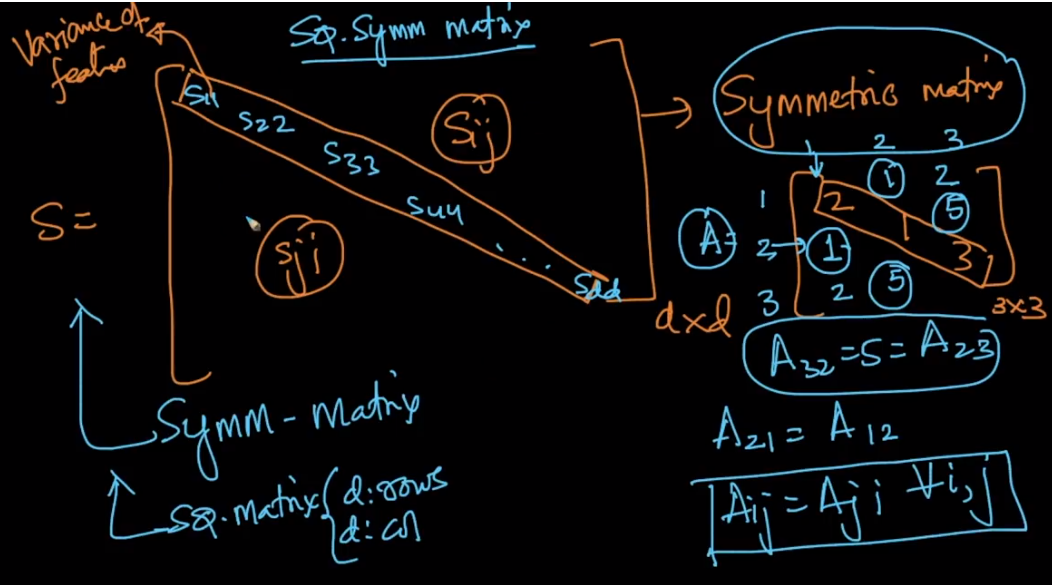 Variance of
featurs
Sq. Symm matrix
S11
S22
S33
S44
. . .
Sdd
Sij
Sji
S=
d×d
Symm - Matrix
Sq. matrix { d: rows
d: col
Symmetric matrix
1 2 3
1 2 1 2
A= 2 1 1 5
3 2 5 3
3×3
A32 = 5 = A23
A21 = A12
Aij = Aji ∀i,j